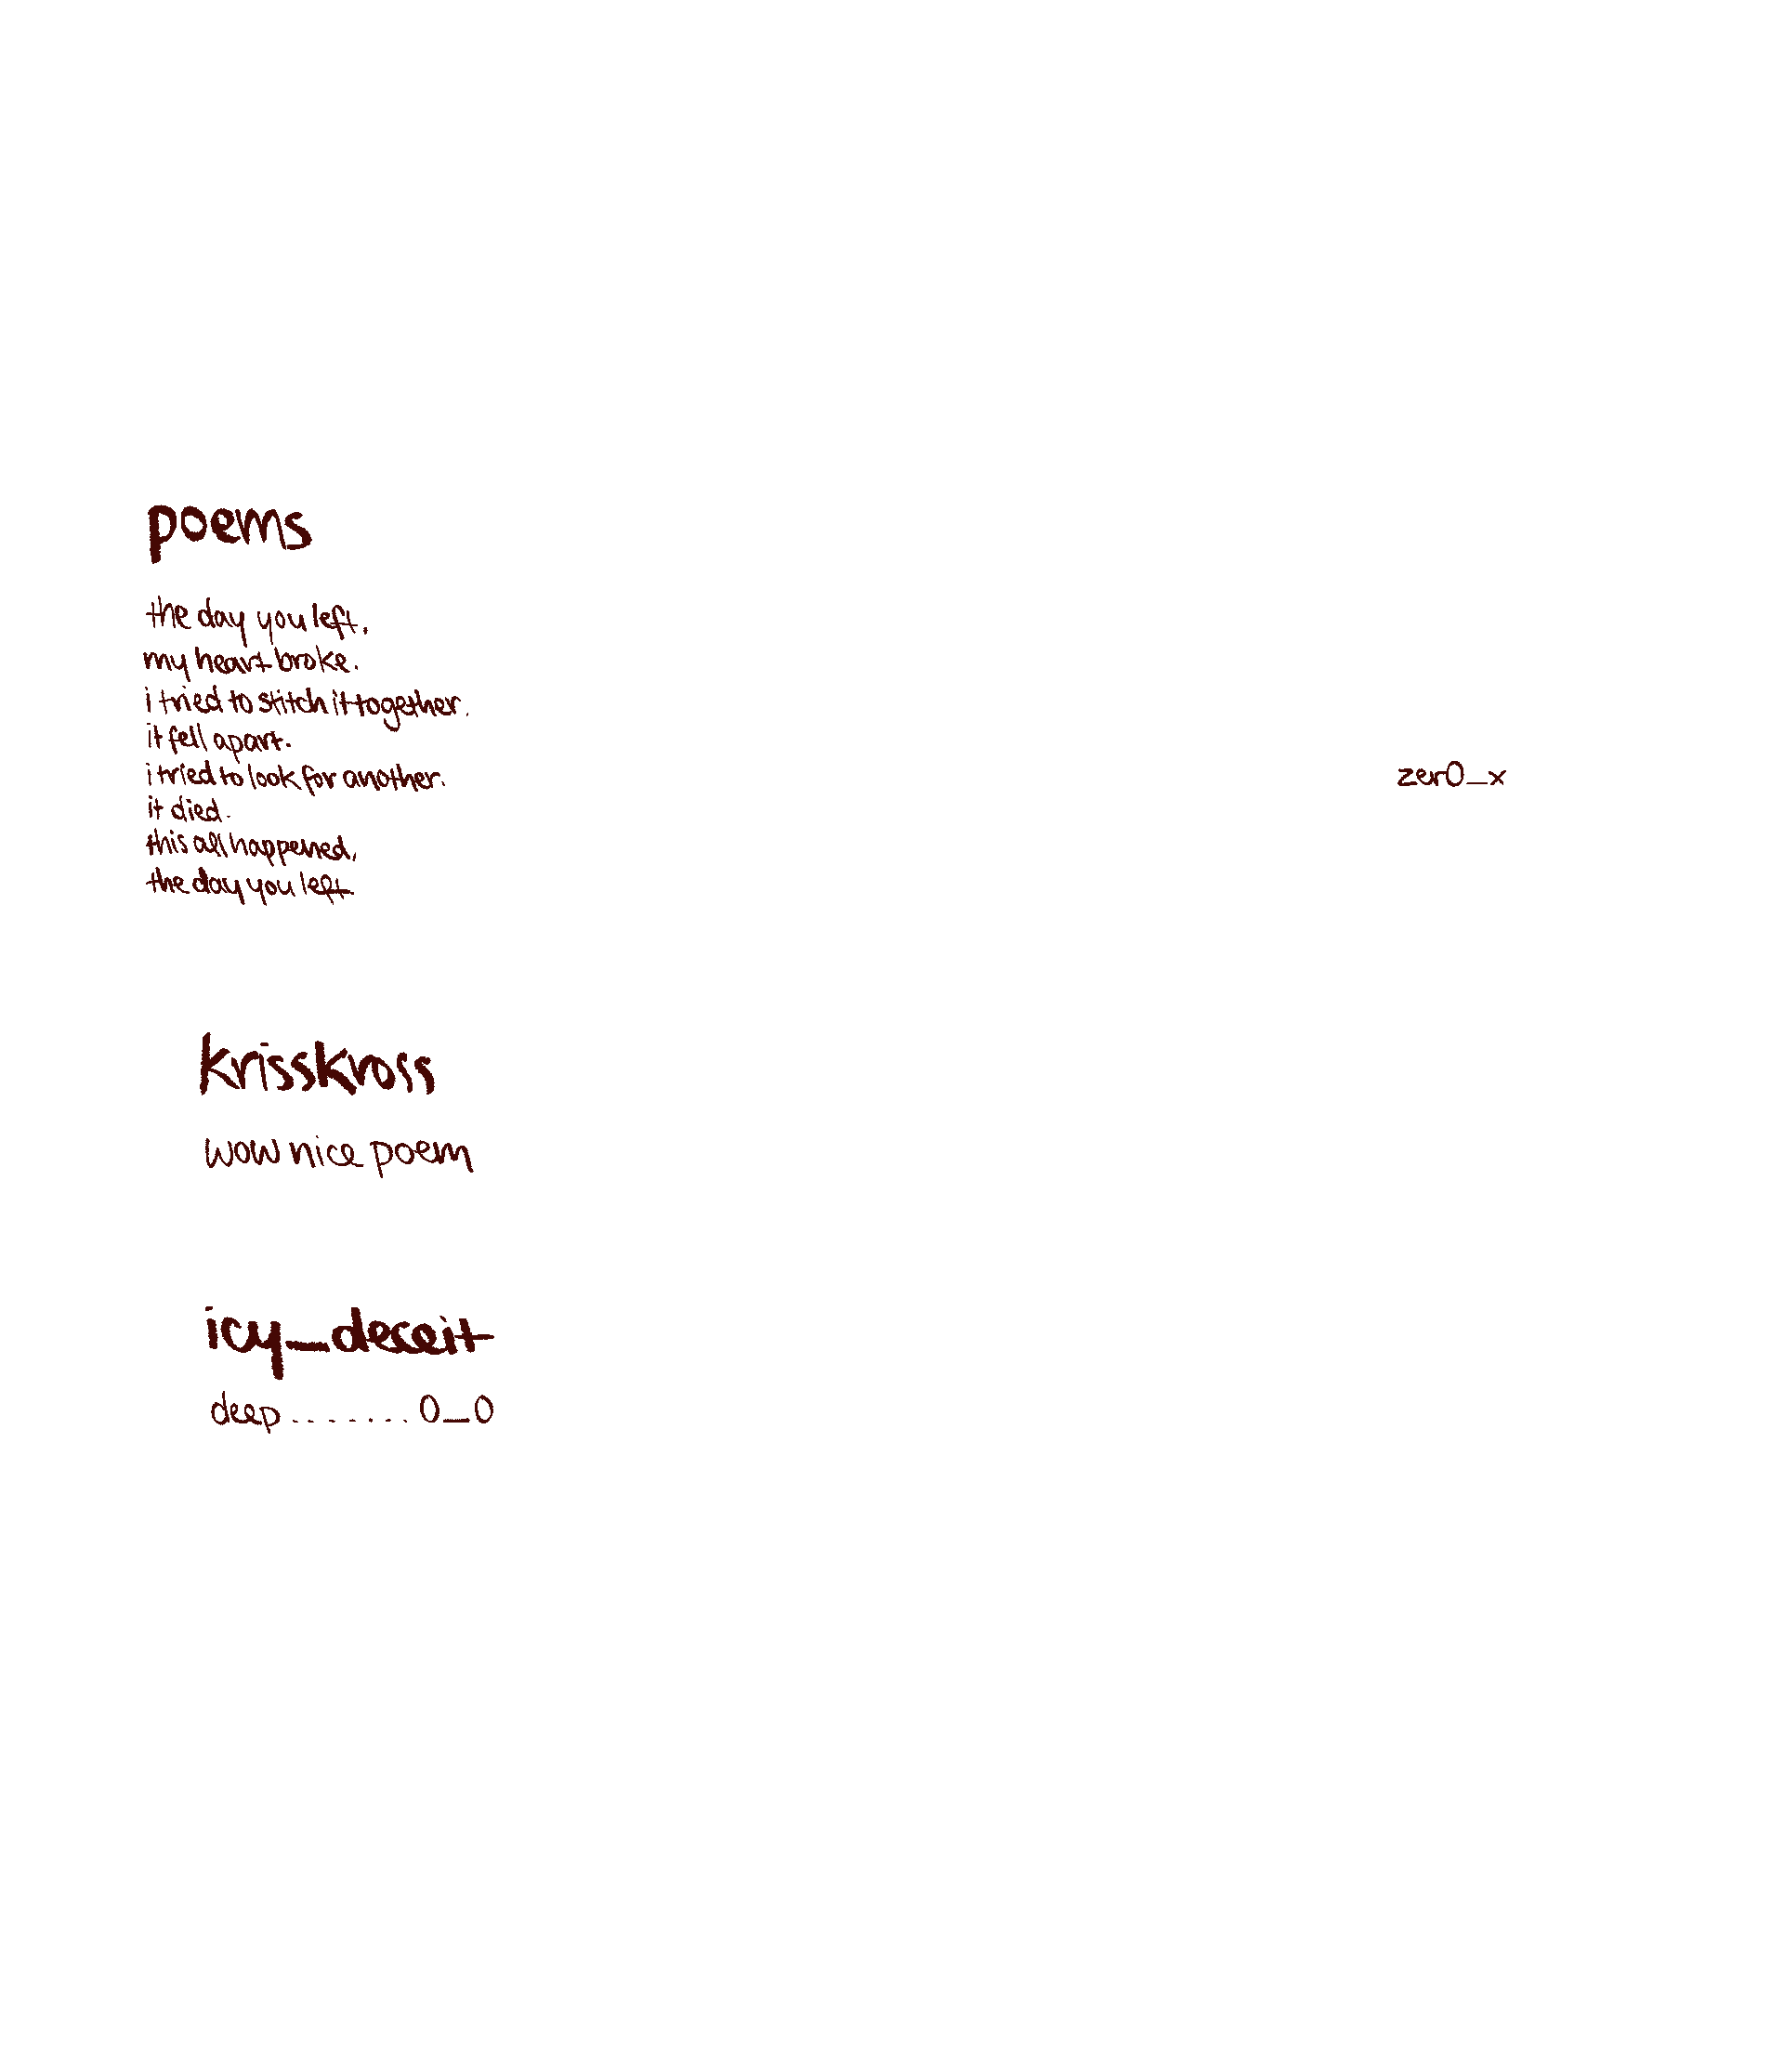 poems
the day you left,
my heart broke.
i tried to stitch it together.
it fell apart.
i tried to look for another.
it died.
this all happened,
the day you left.
zer0_x
krisskross
wow nice poem
icy_deceit
deep ....... 0_0